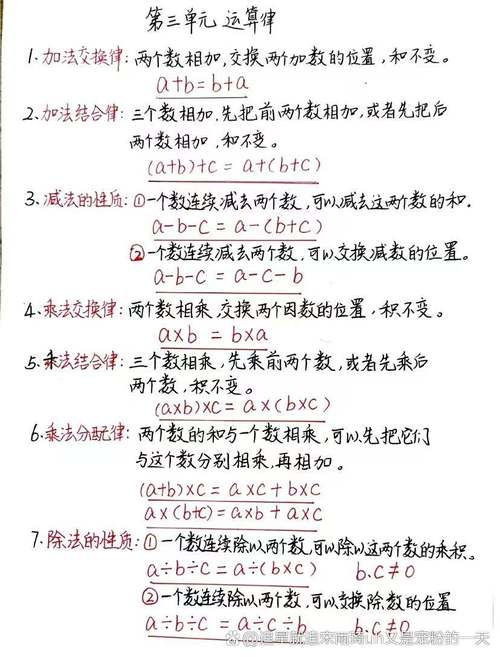 第三单元 运算律
1.加法交换律:两个数相加,交换两个加数的位置,和不变。
a+b=b+a
2.加法结合律:三个数相加,先把前两个数相加,或者先把后
两个数相加,和不变。
(a+b)+c = a+(b+c)
3.减法的性质:①一个数连续减去两个数,可以减去这两个数的和.
a-b-c = a-(b+c)
②一个数连续减去两个数,可以交换减数的位置。
a-b-c = a-c-b
4.乘法交换律:两个数相乘,交换两个因数的位置,积不变。
a×b = b×a
5.乘法结合律:三个数相乘,先乘前两个数,或者先乘后
两个数,积不变。
(a×b)×c = a×(b×c)
6.乘法分配律:两个数的和与一个数相乘,可以先把它们
与这个数分别相乘,再相加。
(a+b)×c = a×c+b×c
a×(b+c) = a×b+a×c
7.除法的性质:①一个数连续除以两个数,可以除以这两个数的乘积。
a÷b÷c = a÷(b×c) b.c≠0
②一个数连续除以两个数,可以交换除数的位置
a÷b÷c = a÷c÷b b.c≠0
又是宠粉的一天